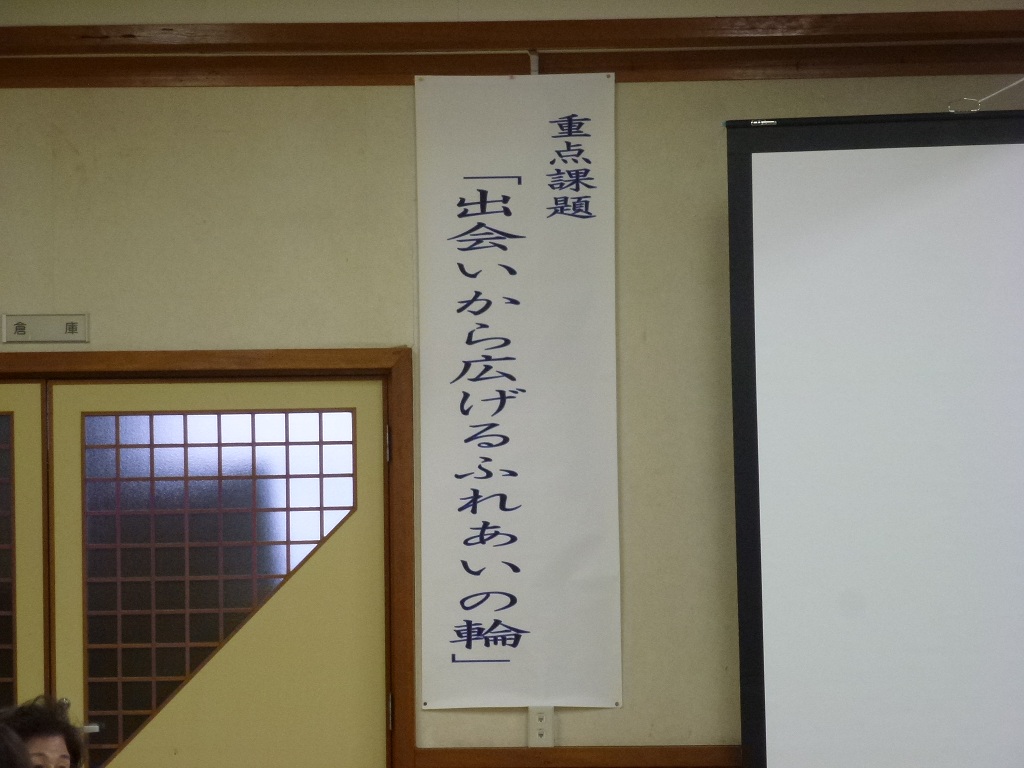 重点課題
「出会いから広げるふれあいの輪」
倉庫